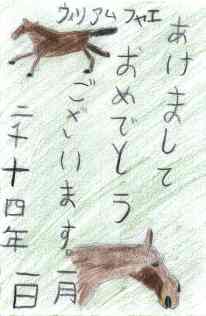 ウィリアム フャエ
あけまして
おめでとう
ございます。
二千十四年
一月
一日